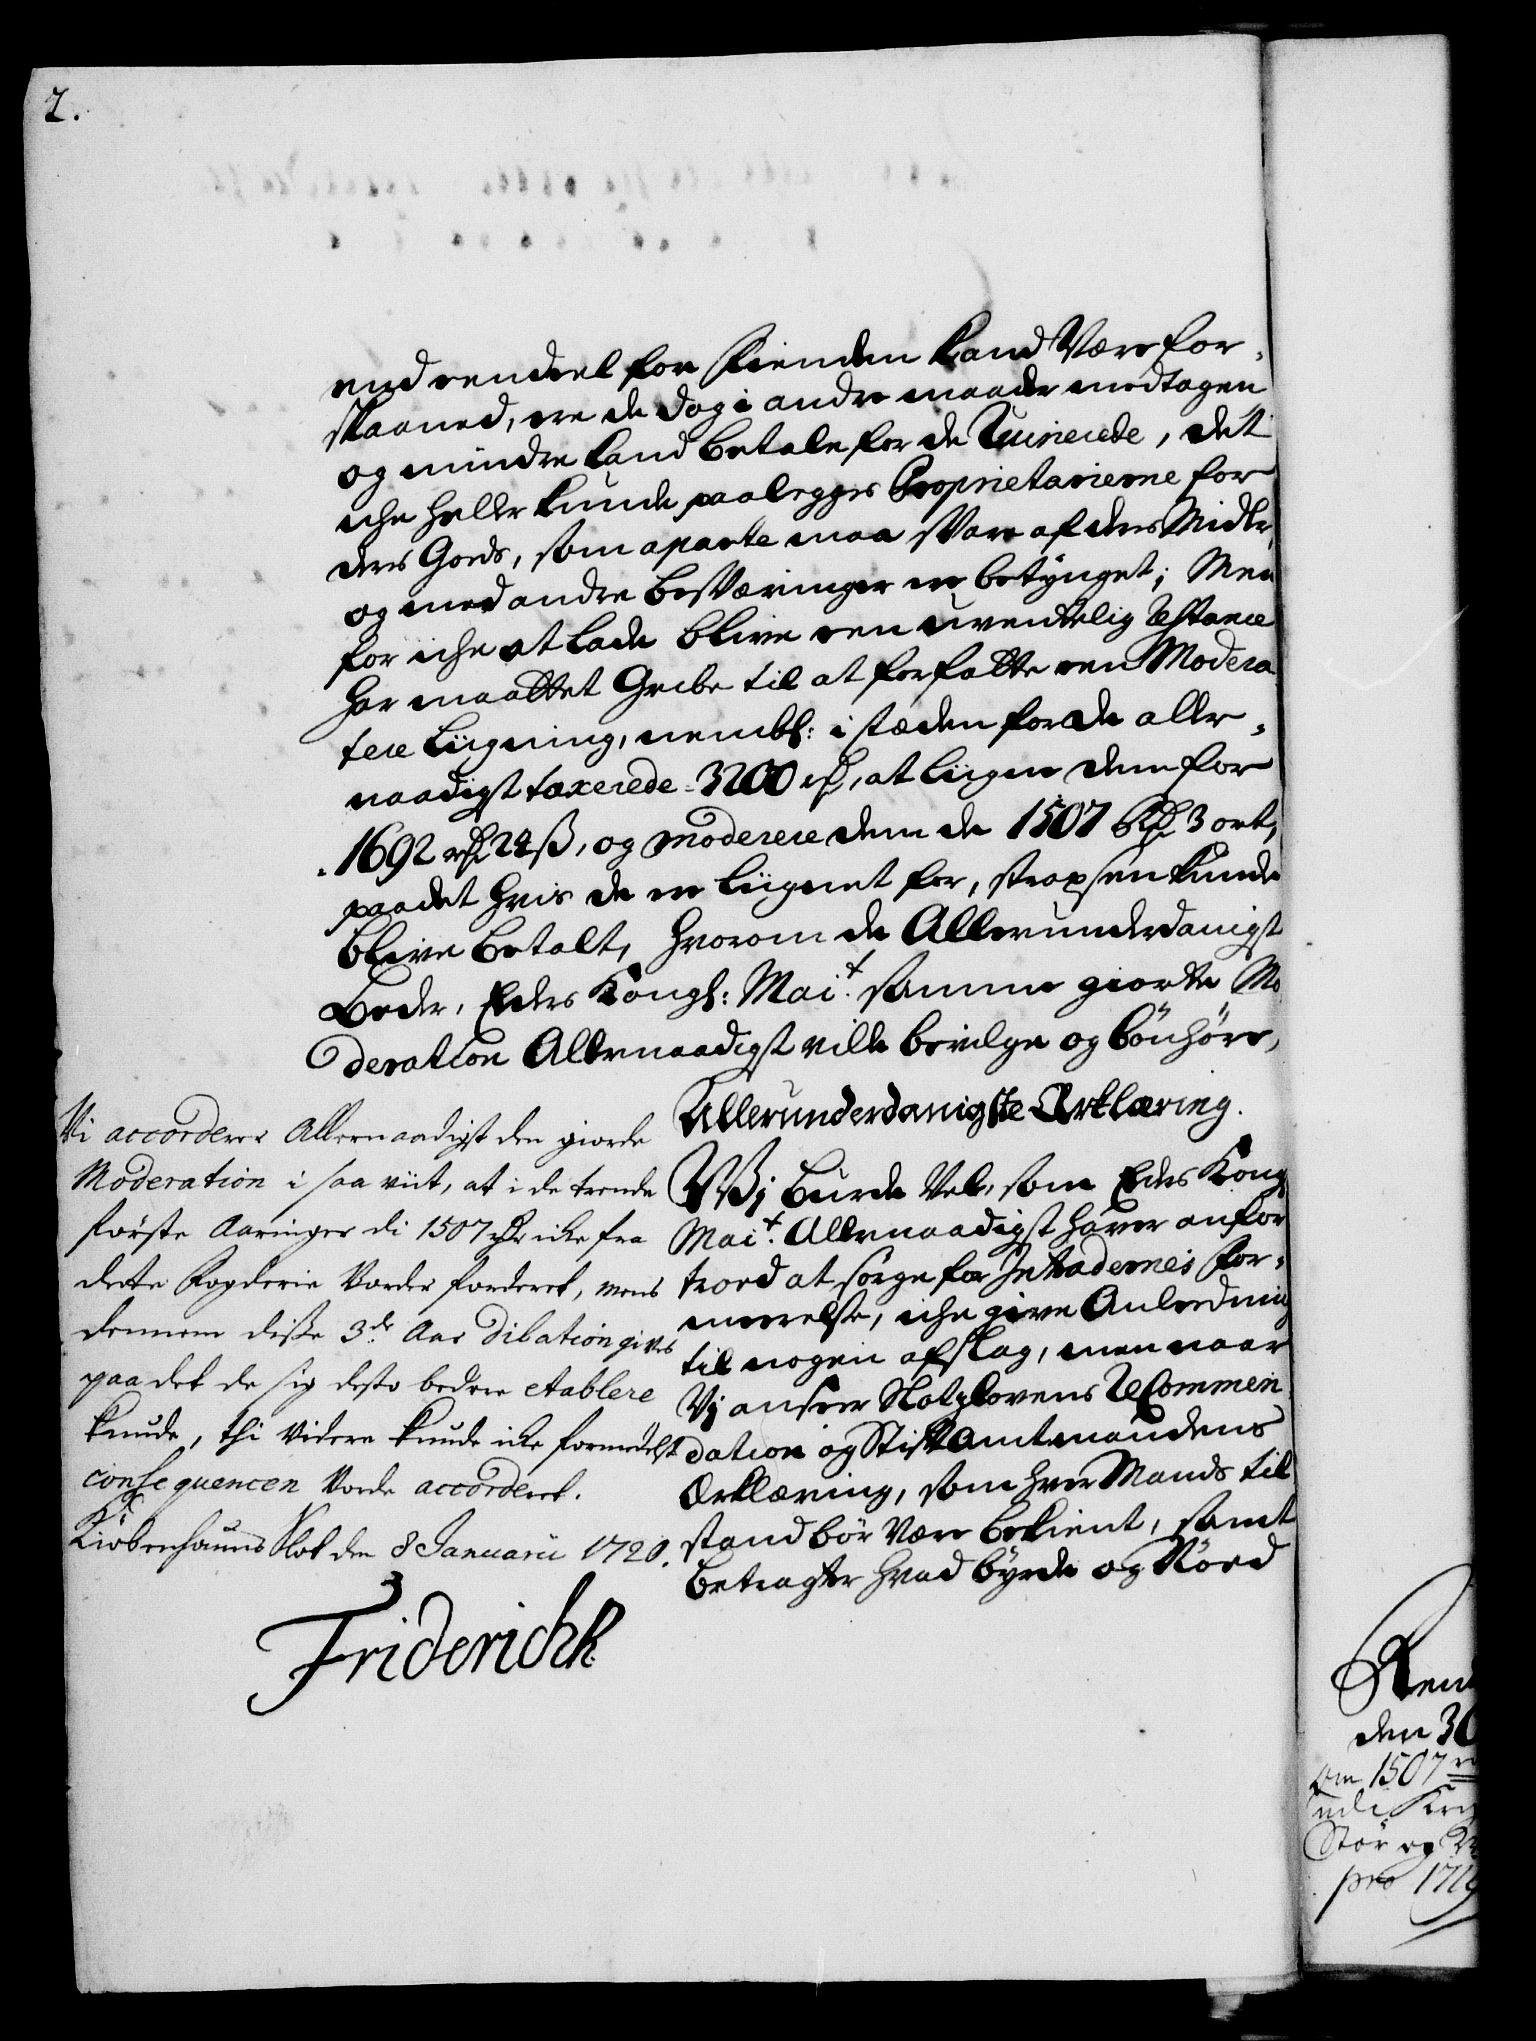 2.
end eendeel for Fienden kand være for-
skaaned, ere de dog i andre maader medtagen
og mindre kand betale for de Ruinerede, dett
iche heller kunde paalegges Proprietarierne for
deres Goeds, som aparte maa svare af deres Midler,
og med andre besværinger er betynget; Men
for iche at lade blive een uvendtelig Restance
har maattet Gribe til at forfatte een Modera
tere Liigning, nembl: i stæden for de aller-
naadigst taxerede 3200 rd, at liigne dem for
1692 rd 24 ß, og moderere dem de 1507 Rd 3 ort,
paa det hvis de er liignet for, strax kunde
blive betalt, hvorom de Allerunderdanigst
beder, Eders Kongl: Mait. samme giorte Mo
deration Allernaadigst ville bevilge og bönhöre,
Allerunderdanigste Erklæring.
Wi burde vel, som Eders Kongl
Mait. Allernaadigst haver anfor
troed at sörge for Intradernes for-
meerelse, iche give Anledning
til nogen afslag, men naar
Vi anseer Slotzlovens Recommen
dation og Stiftamtmandens
Erklæring, som hver Mands til
stand bör være bekient, samt
betragter hvad byrde og Nöed
Vi accorderer Allernaadigst den giorde
Moderation i saa viit, at i de trende
förste Aaringer di 1507 rdr icke fra
dette Fogderie vorder fordret, mens
dennem disse 3de Aar Dilation gives
paa det de sig desto bedere etablere
kunde, thi videre kunde icke formedelst
consequencen vorde accorderet.
Kiöbenhauns Slot den 8 Januarii 1720.
Friderich R
den 30
om 1507 r
udi
Stör og
pro 1719